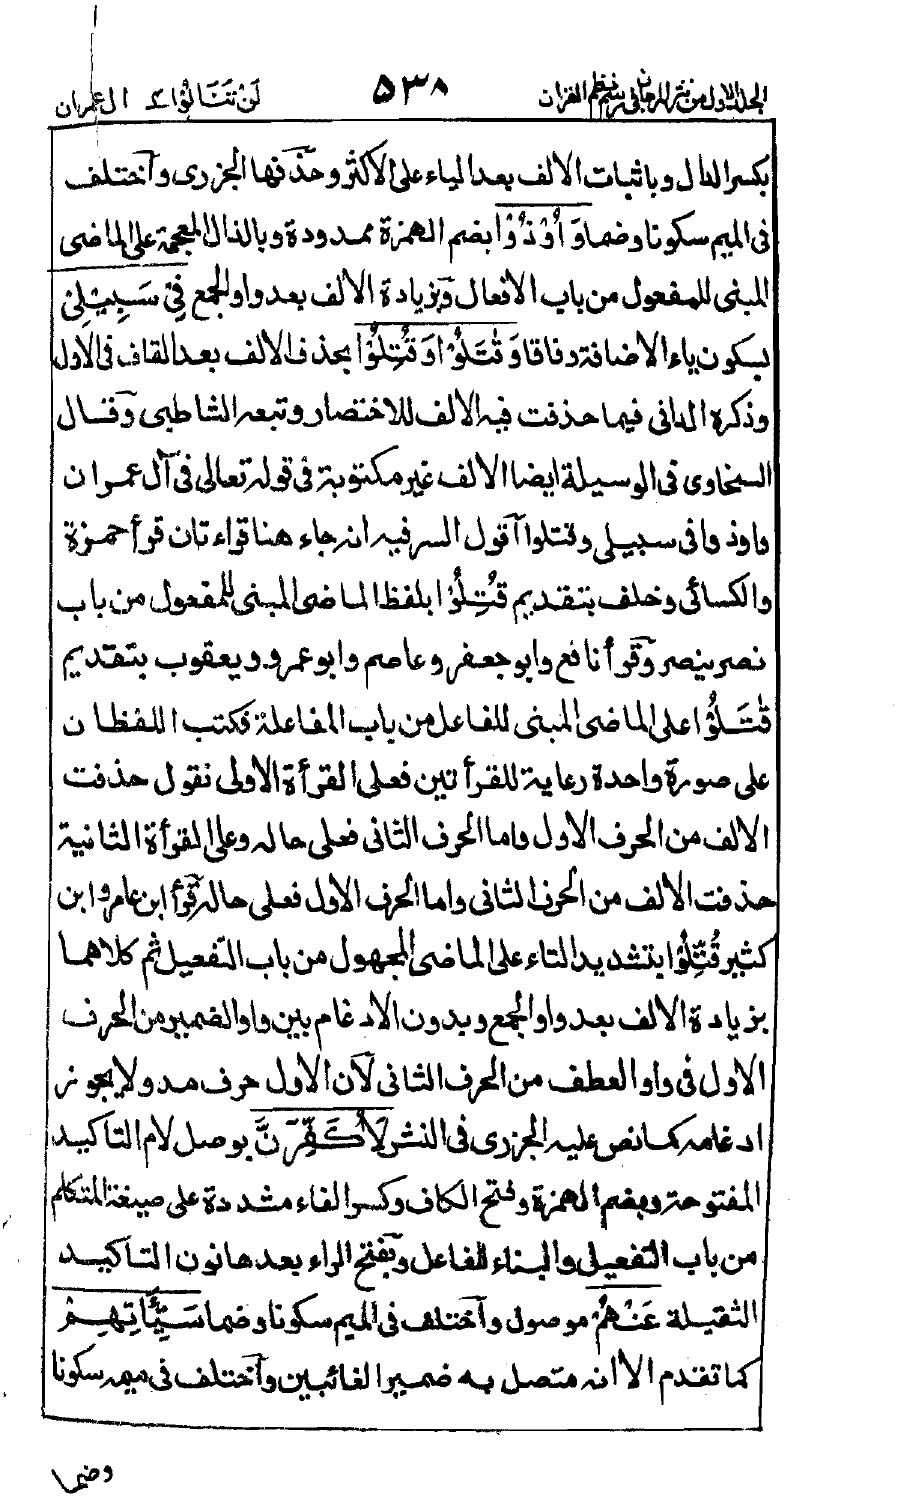 الجلد الاول من نثر المرجان فى رسم نظم القران ٥٣٨ لَنْ تَنَالُوا ٤ ال عمران
بكسر الدال وباثبات الالف بعد الياء على الاكثر وحذفها الجزرى وآختلف
فى الميم سكونا وضما وَأُوْذُوْا بضم الهمزة ممدودة وبالذال المعجمة على الماضى
المبنى للمفعول من باب الافعال وبزيادة الالف بعد واو الجمع فِيْ سَبِيْلِيْ
بسكون ياء الاضافة وفاقا وَقٰتَلُوْا وَقُتِلُوْا بحذف الالف بعد القاف فى الاول
وذكره الدانى فيما حذفت فيه الالف للاختصار وتبعه الشاطبى وقال
السخاوى فى الوسيلة ايضا الالف غير مكتوبة فى قوله تعالى فى آل عمران
واوذوا فى سبيلى وقتلوا آقول السر فيه انه جاء هنا قراءتان قرأ حمزة
والكسائى وخلف بتقديم قُتِلُوْا بلفظ الماضى المبنى للمفعول من باب
نصر ينصر وقرأ نافع وابو جعفر وعاصم وابو عمرو ويعقوب بتقديم
قٰتَلُوْا على الماضى المبنى للفاعل من باب المفاعلة فكتب اللفظان
على صورة واحدة رعاية للقرأتين فعلى القرأة الاولى نقول حذفت
الالف من الحرف الاول واما الحرف الثانى فعلى حاله وعلى القرأة الثانية
حذفت الالف من الحرف الثانى واما الحرف الاول فعلى حاله وقرأ ابن عامر وابن
كثير قُتِّلُوْا بتشديد التاء على الماضى المجهول من باب التفعيل ثم كلاهما
بزيادة الالف بعد واو الجمع وبدون الادغام بين واو الضمير من الحرف
الاول فى واو العطف من الحرف الثانى لآن الاول حرف مد ولا يجوز
ادغامه كما نص عليه الجزرى فى النشر لَأُكَفِّرَنَّ بوصل لام التاكيد
المفتوحة وبضم الهمزة وفتح الكاف وكسر الفاء مشددة على صيغة المتكلم
من باب التفعيل والبناء للفاعل وبفتح الراء بعدها نون التاكيد
الثقيلة عَنْهُمْ موصول وآختلف فى الميم سكونا وضما سَيِّاٰتِهِمْ
كما تقدم الا انه متصل به ضمير الغائبين وآختلف فى ميمه سكونا
وضما